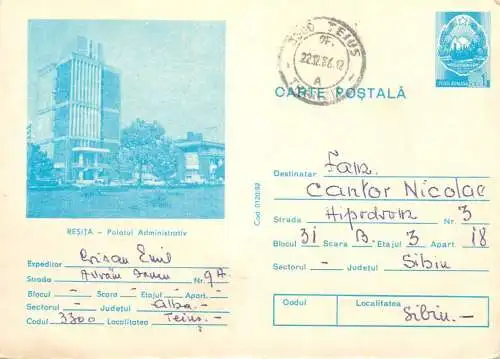 3300 TEIUS
22.12.86.12
A
POSTA ROMANA
CARTE POȘTALĂ
REȘIȚA – Palatul Administrativ
Expeditor Crișan Emil
Strada Avram Iancu Nr. 9A
Blocul – Scara – Etajul – Apart. –
Sectorul – Județul Alba –
Codul 3300 Localitatea Teiuș –
Cod 0120/82
Destinatar Fam.
Cantor Nicolae
Strada Hipodrom Nr. 3
Blocul 31 Scara B. Etajul 3 Apart. 18
Sectorul – Județul Sibiu
Codul Localitatea Sibiu. –